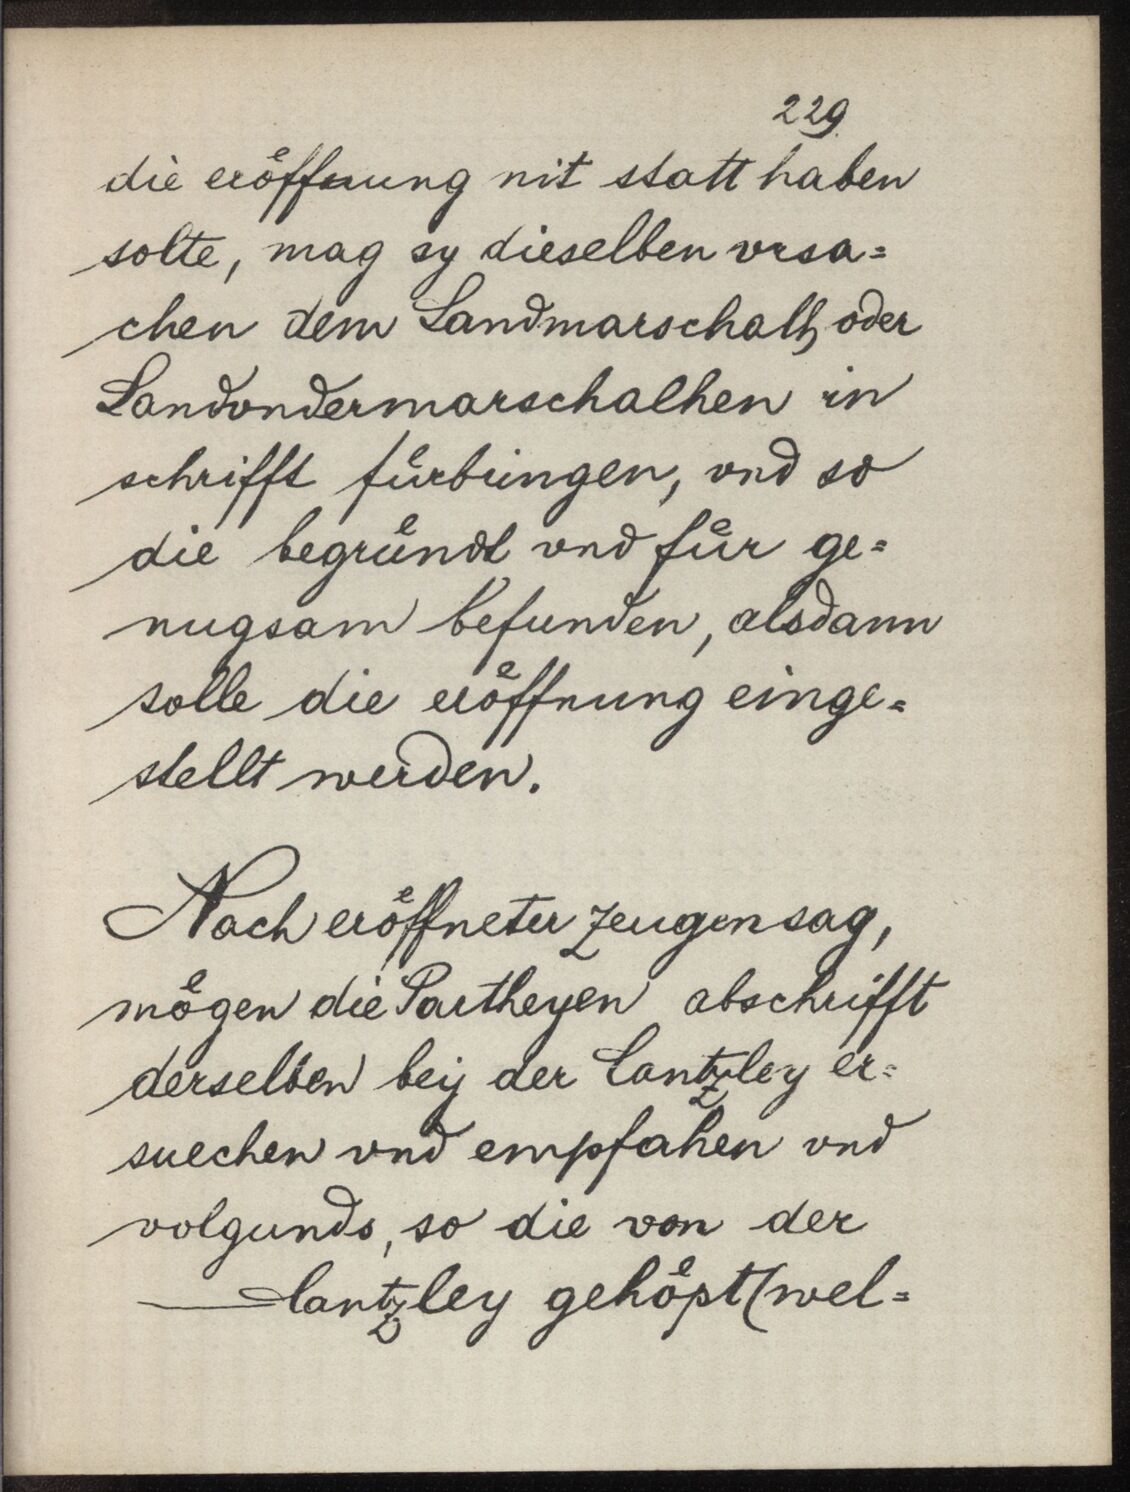 229.
die eröffnung nit statt haben
solte, mag sy dieselben vrsa=
chen dem Landmarschalh oder
Landvndermarschalhen in
schrifft fürbringen, vnd so
die begründt vnd für ge=
nugsam befunden, alsdann
solle die eröffnung einge=
stellt werden.
Nach eröffneter zeugensag,
mögen die Partheyen abschrifft
derselben bey der Cantzley er=
suechen vnd empfahen vnd
volgunds, so die von der
Cantzley gehöpt (wel=